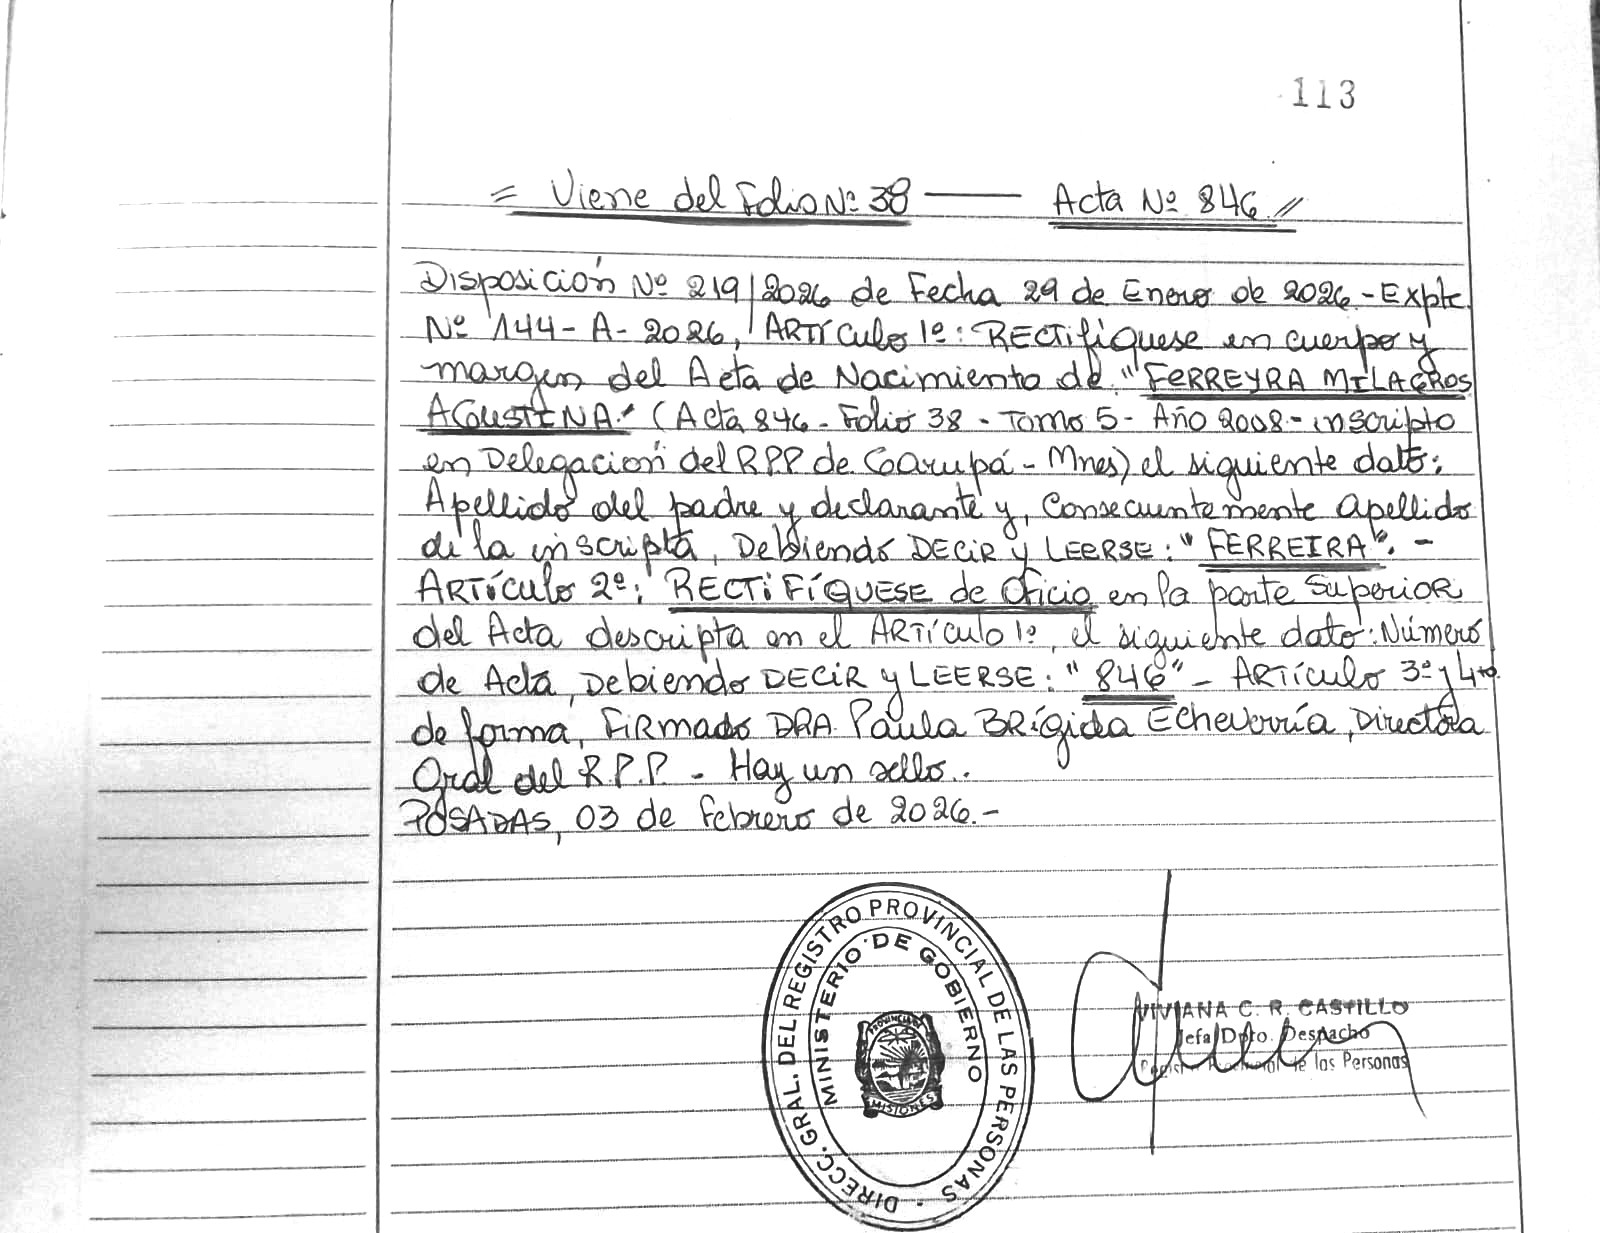 113
= Viene del Folio Nº 38 —— Acta Nº 846 //
Disposición Nº 219/2026 de Fecha 29 de Enero de 2026 - Expte
Nº 144 - A - 2026, ARTÍCulo 1º: RECTifíQuese en cuerpo y
margen del Acta de Nacimiento de "FERREYRA MILAGROS
AGUSTINA" (Acta 846 - Folio 38 - Tomo 5 - Año 2008 - inscripto
en Delegación del RPP de Garupá - Mnes) el siguiente dato:
Apellido del padre y declarante y, Consecuentemente apellido
de la inscripta, Debiendo DECIR y LEERSE: "FERREIRA". -
ARTÍCULO 2º: RECTIFÍQUESE de Oficio en la parte Superior
del Acta descripta en el ARTÍCULO 1º, el siguiente dato: Número
de Acta, Debiendo DECIR y LEERSE: "846" - ARTÍCULO 3º y 4to.
de forma, Firmado DRA. Paula BRÍgida Echeverría, Directora
Gral del R.P.P. - Hay un sello..
POSADAS, 03 de Febrero de 2026.-
DIRECC. GRAL. DEL REGISTRO PROVINCIAL DE LAS PERSONAS
MINISTERIO DE GOBIERNO
PROVINCIA DE
MISIONES
VIVIANA C. R. CASTILLO
Jefa Dpto. Despacho
Registro Provincial de las Personas